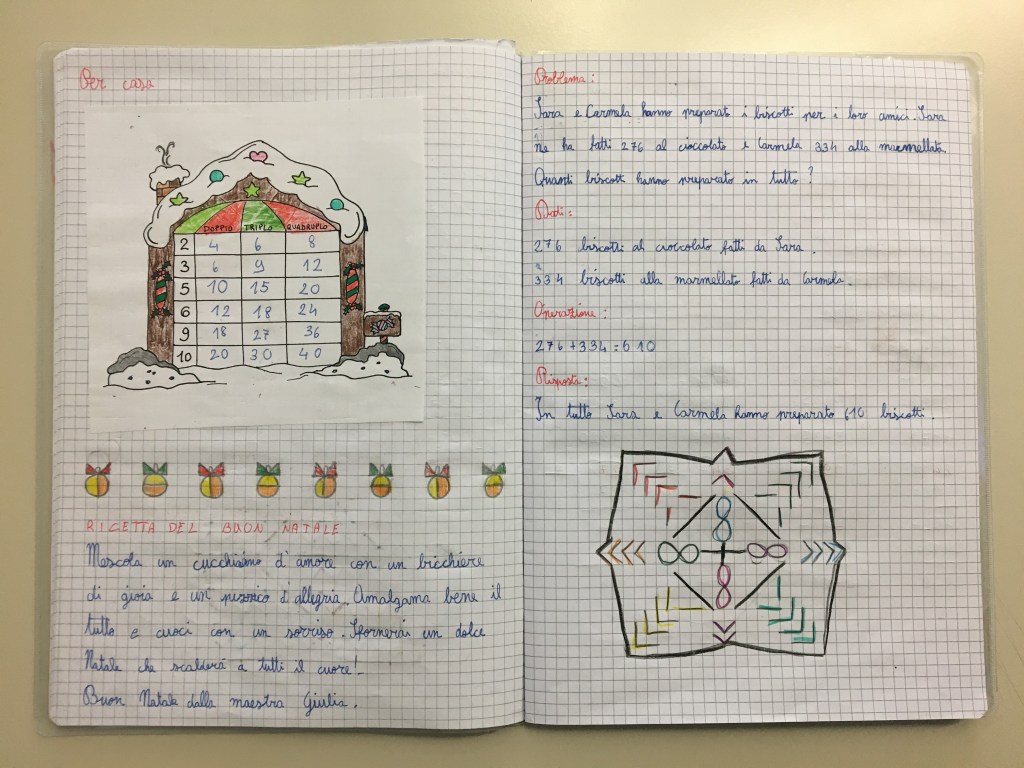 Per casa
DOPPIO TRIPLO QUADRUPLO
2 4 6 8
3 6 9 12
5 10 15 20
6 12 18 24
9 18 27 36
10 20 30 40
RICETTA DEL BUON NATALE
Mescola un cucchiaino d'amore con un bicchiere
di gioia e un pizzico d'allegria. Amalgama bene il
tutto e cuoci con un sorriso. Sfornerai un dolce
Natale che scalderà a tutti il cuore!
Buon Natale dalla maestra Giulia.
Problema:
Sara e Carmela hanno preparato i biscotti per i loro amici. Sara
ne ha fatti 276 al cioccolato e Carmela 334 alla marmellata.
Quanti biscotti hanno preparato in tutto?
Dati:
276 biscotti al cioccolato fatti da Sara.
334 biscotti alla marmellata fatti da Carmela.
Operazione:
276+334=610
Risposta:
In tutto Sara e Carmela hanno preparato 610 biscotti.